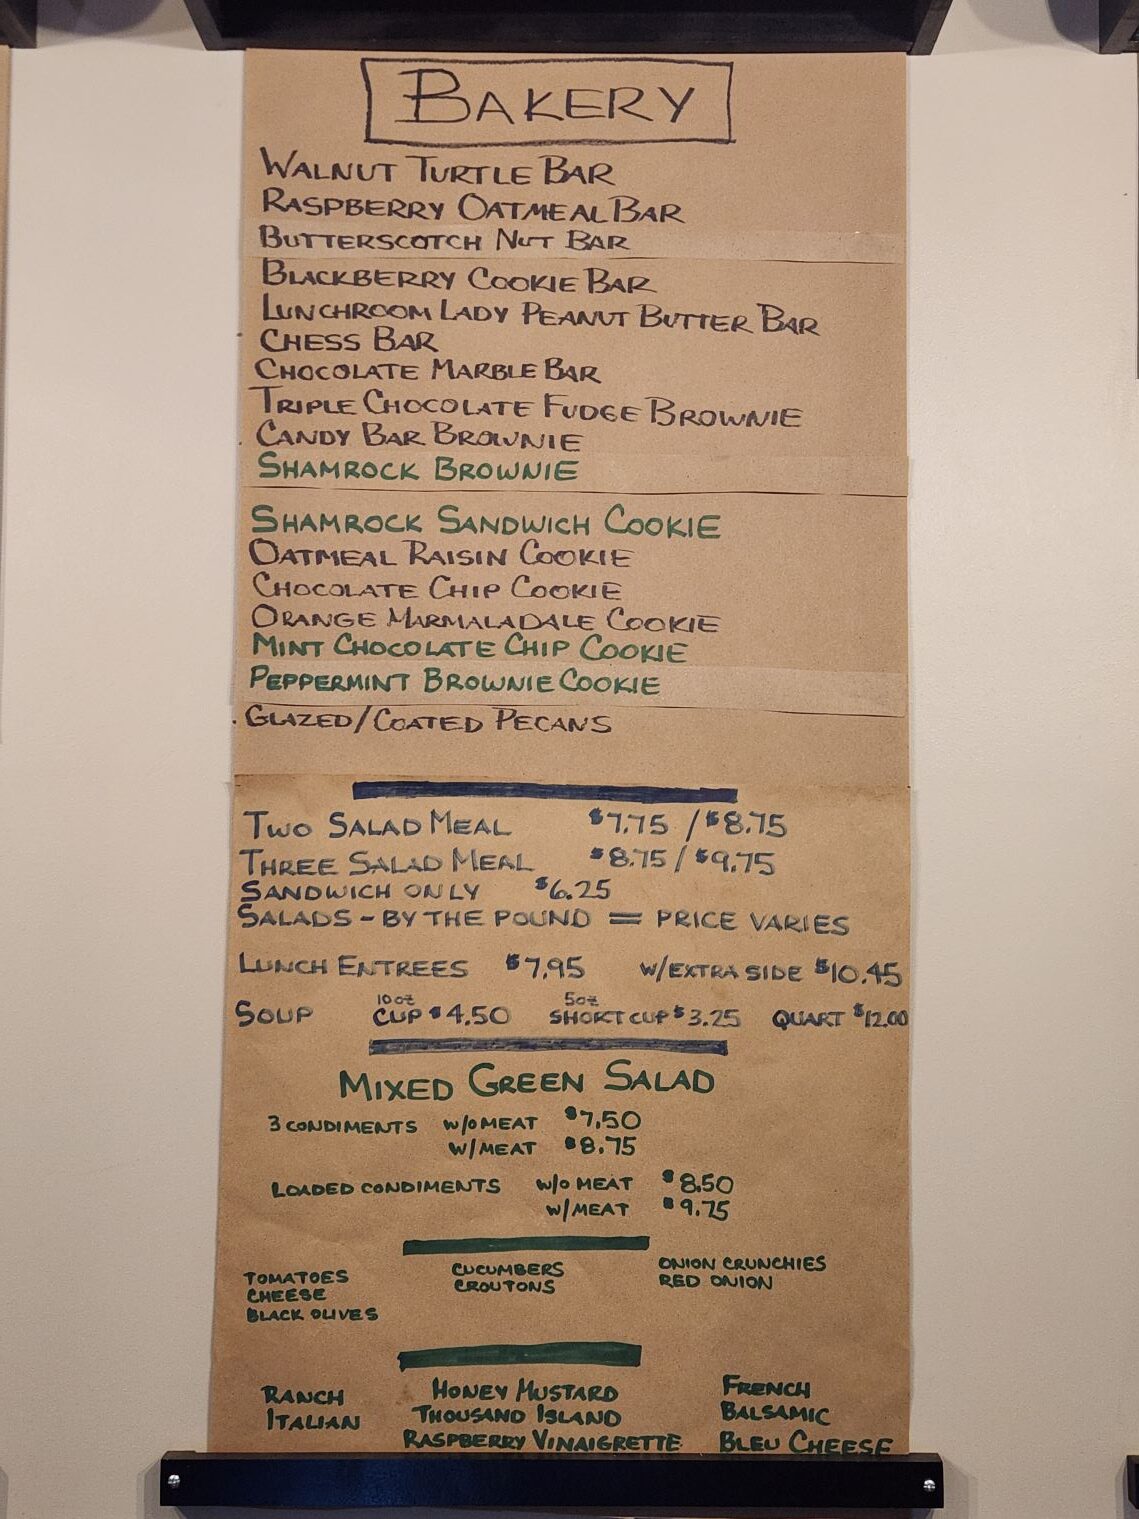 BAKERY
WALNUT TURTLE BAR
RASPBERRY OATMEAL BAR
BUTTERSCOTCH NUT BAR
BLACKBERRY COOKIE BAR
LUNCHROOM LADY PEANUT BUTTER BAR
CHESS BAR
CHOCOLATE MARBLE BAR
TRIPLE CHOCOLATE FUDGE BROWNIE
CANDY BAR BROWNIE
SHAMROCK BROWNIE
SHAMROCK SANDWICH COOKIE
OATMEAL RAISIN COOKIE
CHOCOLATE CHIP COOKIE
ORANGE MARMALADALE COOKIE
MINT CHOCOLATE CHIP COOKIE
PEPPERMINT BROWNIE COOKIE
GLAZED/COATED PECANS
TWO SALAD MEAL $7.75 / $8.75
THREE SALAD MEAL $8.75 / $9.75
SANDWICH ONLY $6.25
SALADS - BY THE POUND = PRICE VARIES
LUNCH ENTREES $7.95 W/EXTRA SIDE $10.45
SOUP 10oz CUP $4.50 5oz SHORT CUP $3.25 QUART $12.00
MIXED GREEN SALAD
3 CONDIMENTS W/O MEAT $7.50
W/MEAT $8.75
LOADED CONDIMENTS W/O MEAT $8.50
W/MEAT $9.75
TOMATOES CUCUMBERS ONION CRUNCHIES
CHEESE CROUTONS RED ONION
BLACK OLIVES
RANCH HONEY MUSTARD FRENCH
ITALIAN THOUSAND ISLAND BALSAMIC
RASPBERRY VINAIGRETTE BLEU CHEESE